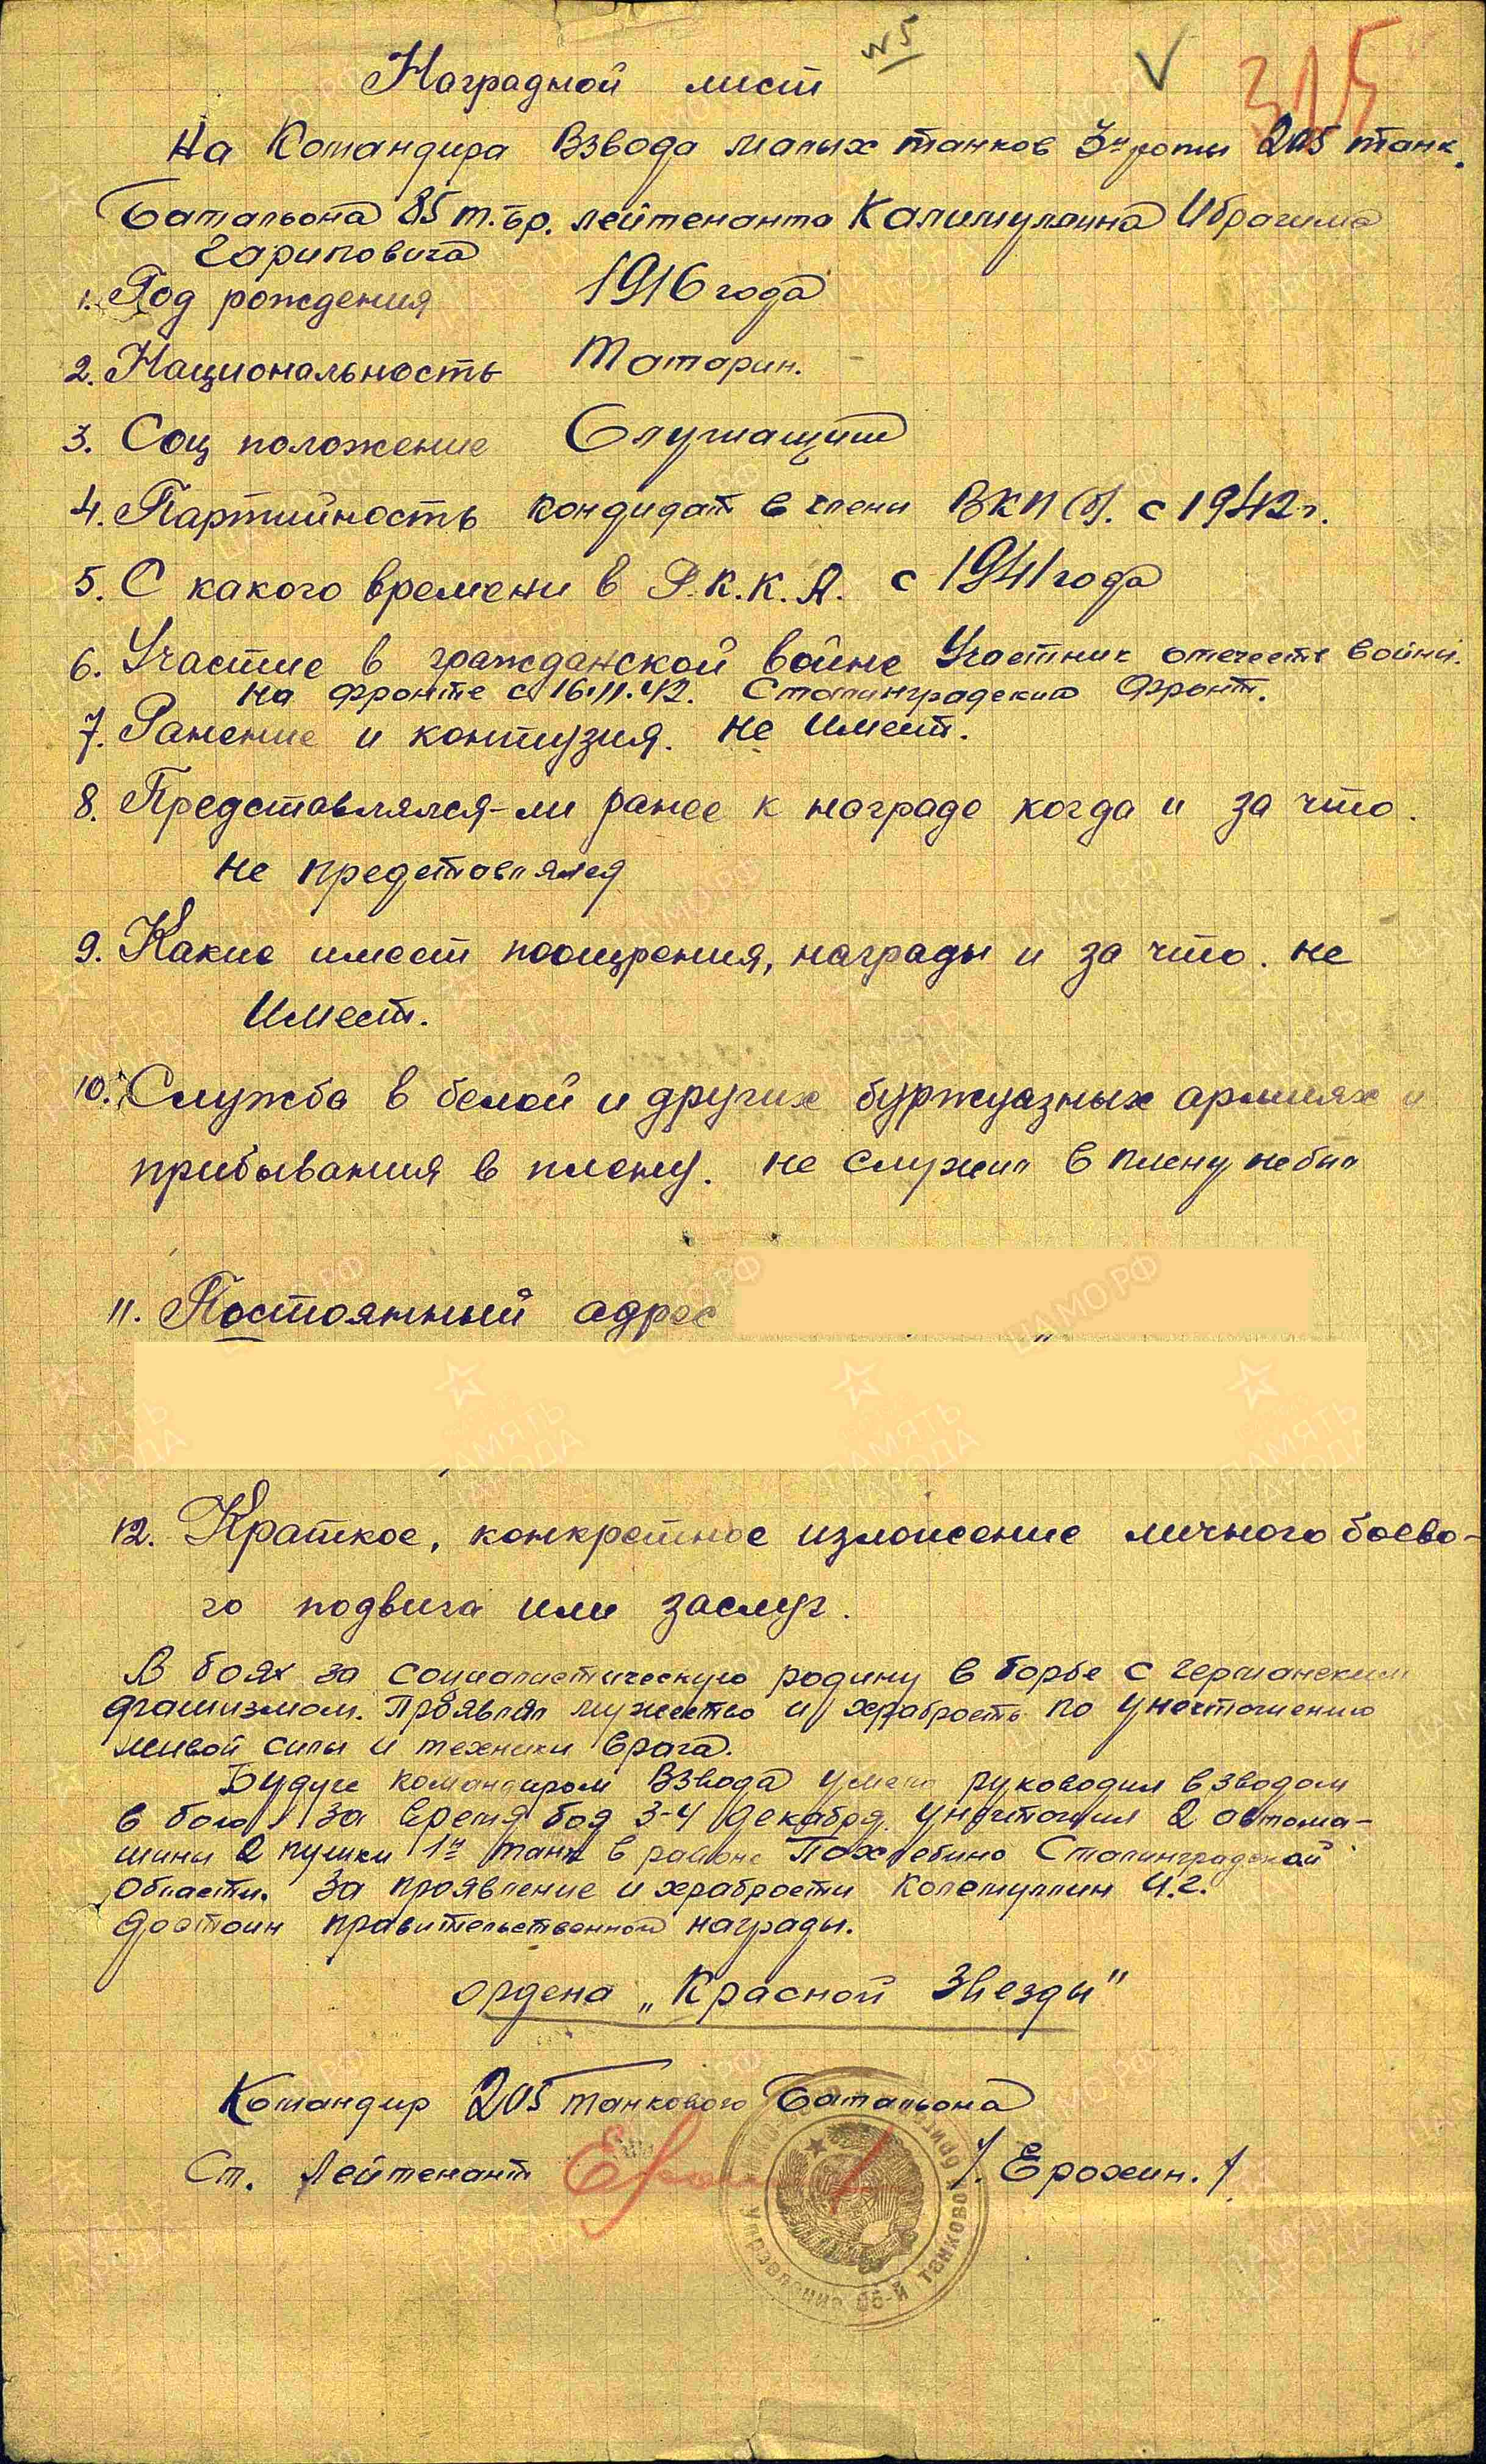 №5
315
Наградной лист
На Командира Взвода малых танков 3й роты 205 танк.
Батальона 85 т.бр. лейтенанта Калимуллина Ибрагима
Гариповича
1. Год рождения 1916 года
2. Национальность Татарин.
3. Соц положение Служащий
4. Партийность кондидат в члени ВКП(б). с 1942 г.
5. С какого времени в Р.К.К.А. с 1941 года
6. Участие в гражданской войне Участник отечеств войни.
на фронте с 16.11.42. Сталинградский Фронт.
7. Ранение и контузия. не имеет.
8. Представлялся-ли ранее к награде когда и за что.
не представлялся
9. Какие имеет поощрения, награды и за что. не
имеет.
10. Служба в белой и других буржуазных армиях и
прибывания в плену. не служил в плену не был
11. Постоянный адрес
12. Краткое, конкретное изложение личного боево-
го подвига или заслуг.
В боях за социалистическую родину в борбе с германским
фашизмом. Проявлял мужество и храбрость по уничтожению
живой силы и техники врага.
Будуче командиром Взвода умело руководил взводом
в бою за время боя 3-4 декабря уничтожил 2 автома-
шины 2 пушки 1н танк в районе Похлебино Сталинградской
Области. За проявление и храбрости Колемуллин И.Г.
достоин правительственной награды.
ордена „Красной Звезды"
Командир 205 танкового Батальона
Ст. Лейтенант /. Ерохин. /
Управление танковой
ЦАМО.РФ
ПАМЯТЬ НАРОДА